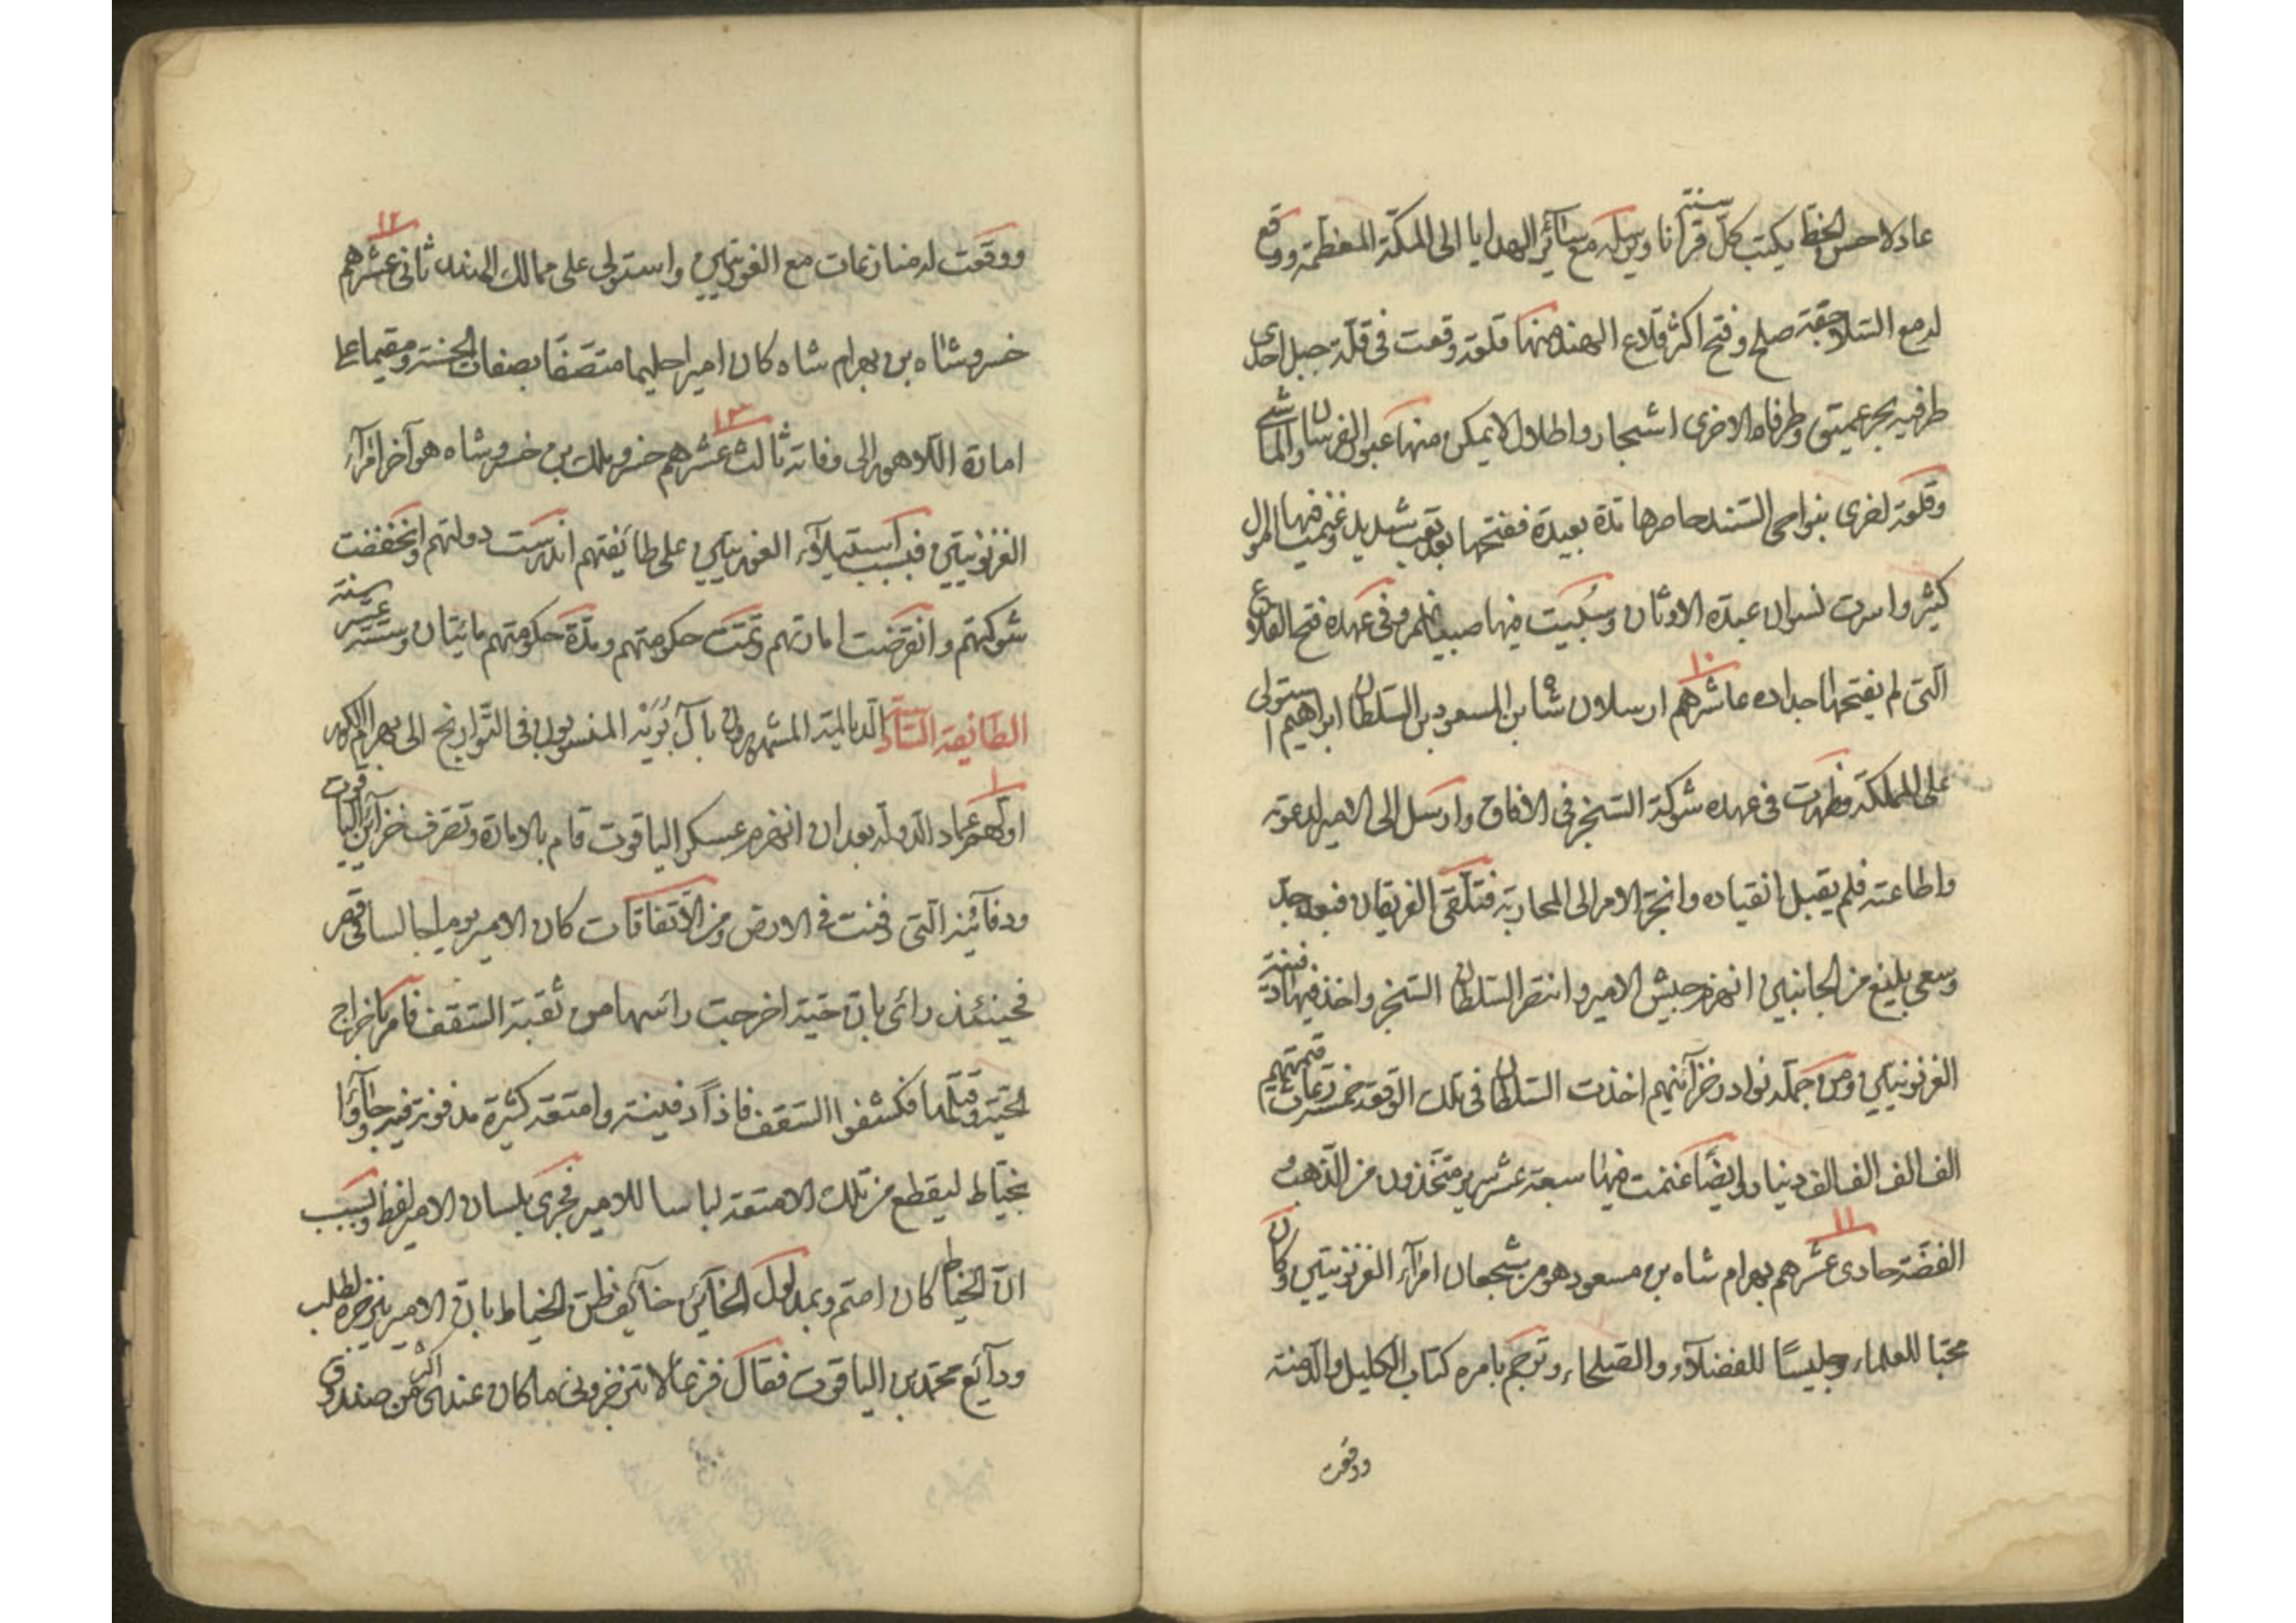 عادلا حسن الخط يكتب كل سنة قرآنا ويرسله مع سآئر الهدايا الى المكة المعظمة ووقع
له مع السلاجقة صلح وفتح اكثر قلاع الهند منها قلعة وقعت فى قلة جبل احدى
طرفيه بحر عميق وطرفاه الاخرى اشجار واطلال لا يمكن منها عبور الفرسان والماشى
وقلعة اخرى بنواحى السند حاصرها مدة بعيدة ففتحها بعد تعب شديد وغنيمت فيها اموال
كثير واسرت نسوان عبدة الاوثان وسبيت فيها صبيانهم وفى عهده فتح القلاع
التى لم يفتحها اجداده عاشرهم ١٠ ارسلان شاه بن المسعود بن السلطان ابراهيم استولى
على المملكة فظهرت فى عهده شوكة السنجر فى الافاق وارسل الى الامير لدعوته
واطاعته فلم يقبل انقياده وانجر الامر الى المحاربة فتلاقى الفريقان فبعد جد
وسعى بليغ من الجانبين انهزم جيش الامير وانتصر السلطان السنجر واخذ فيها دفينة
الغزنويين ومن جملة نوادر خزآئنهم اخذت السلطان فى تلك الوقعة خمسة تيجان قيمتهم
الف الف الف الف دينار وايضا غنمت فيها سبعة عشر سرير متخذون من الذهب و
الفضة حادى عشرهم ١١ بهرام شاه بن مسعود هو من شجعان امرآء الغزنويين وكان
محبا للعلماء وجليسا للفضلآء والصلحاء وترجم بامره كتاب الكليل والدمنة
ووقعت
ووقعت له منازعات مع الغوريين واستولى على ممالك الهند ثانى عشرهم ١٢
خسرو شاه بن بهرام شاه كان اميرا حليما متصفا بصفات الحسنة ومقيما على
امارة اللاهور الى وفاته ثالث عشرهم ١٣ خسرو ملك بن خسرو شاه هو آخر امرآء
الغزنويين فبسبب استيلآء الغوريين على طائفتهم اندرست دولتهم وانخفضت
شوكتهم وانقرضت امارتهم وتمت حكومتهم ومدة حكومتهم مائتان وستة عشر سنة
الطائفة السادسة الديالمة المشهورون بآل بويه المنسوبون فى التواريخ الى بهرام الكور
اولهم ١ عماد الدولة بعد ان انهزم عسكر الياقوت قام بالامارة وتصرف خزآئن الياقوت
ودفآئنه التى دفنت فى الارض ومن الاتفاقات كان الامير يوما جالسا فى قصر
فحينئذ رأى بان حية اخرجت رأسها من ثقبة السقف فامر باخراج
الحية وقتلها فكشفوا السقف فاذا دفينة وامتعة كثيرة مدفونة فيه وجآؤا
بخياط ليقطع من تلك الامتعة لباسا للامير فجرى بلسان الامير لفظ وبسبب
ان الخياط كان اصم وبمدلول الخآئن خآئف ظن الخياط بان الامير يزجره لطلب
ودآئع محمد بن الياقوت فقال فزعا لا تزجرونى ما كان عندى اكثر من صندوق